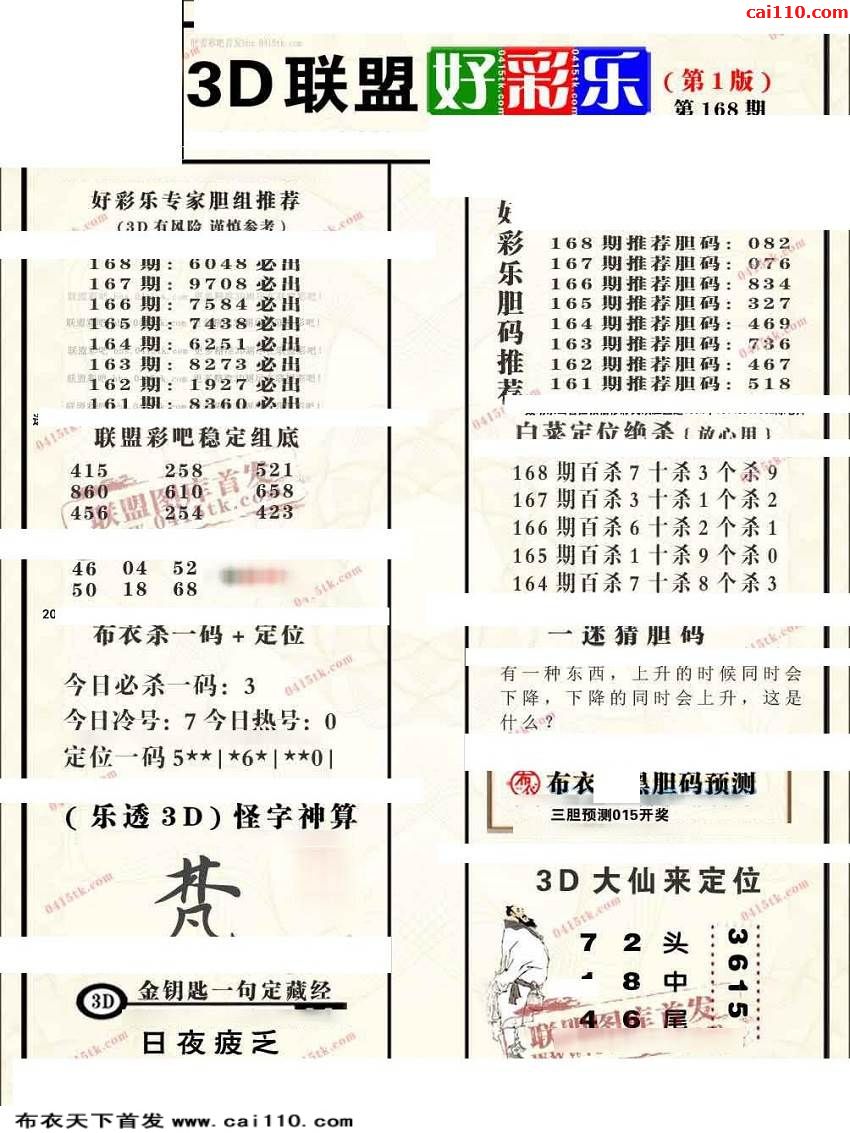 cai110.com
3D联盟好彩乐(第1版)
第168期
好彩乐专家胆组推荐
(3D有风险 谨慎参考)
168期: 6048必出
167期: 9708必出
166期: 7584必出
165期: 7438必出
164期: 6251必出
163期: 8273必出
162期: 1927必出
161期: 8360必出
联盟彩吧稳定组底
415 258 521
860 610 658
456 254 423
46 04 52
50 18 68
20
布衣杀一码+定位
今日必杀一码: 3
今日冷号: 7 今日热号: 0
定位一码 5**|*6*|**0|
(乐透3D)怪字神算
梵
3D 金钥匙一句定藏经
日夜疲乏
好彩乐胆码推荐
168期推荐胆码: 082
167期推荐胆码: 076
166期推荐胆码: 834
165期推荐胆码: 327
164期推荐胆码: 469
163期推荐胆码: 736
162期推荐胆码: 467
161期推荐胆码: 518
白菜定位绝杀{放心用}
168期百杀7十杀3个杀9
167期百杀3十杀1个杀2
166期百杀6十杀2个杀1
165期百杀1十杀9个杀0
164期百杀7十杀8个杀3
一迷猜胆码
有一种东西，上升的时候同时会
下降，下降的同时会上升，这是
什么？
布衣 胆码预测
三胆预测015开奖
3D大仙来定位
7 2 头
8 中
4 6 尾
3615
联盟图库首发
0415tk.com
布衣天下首发 www.cai110.com